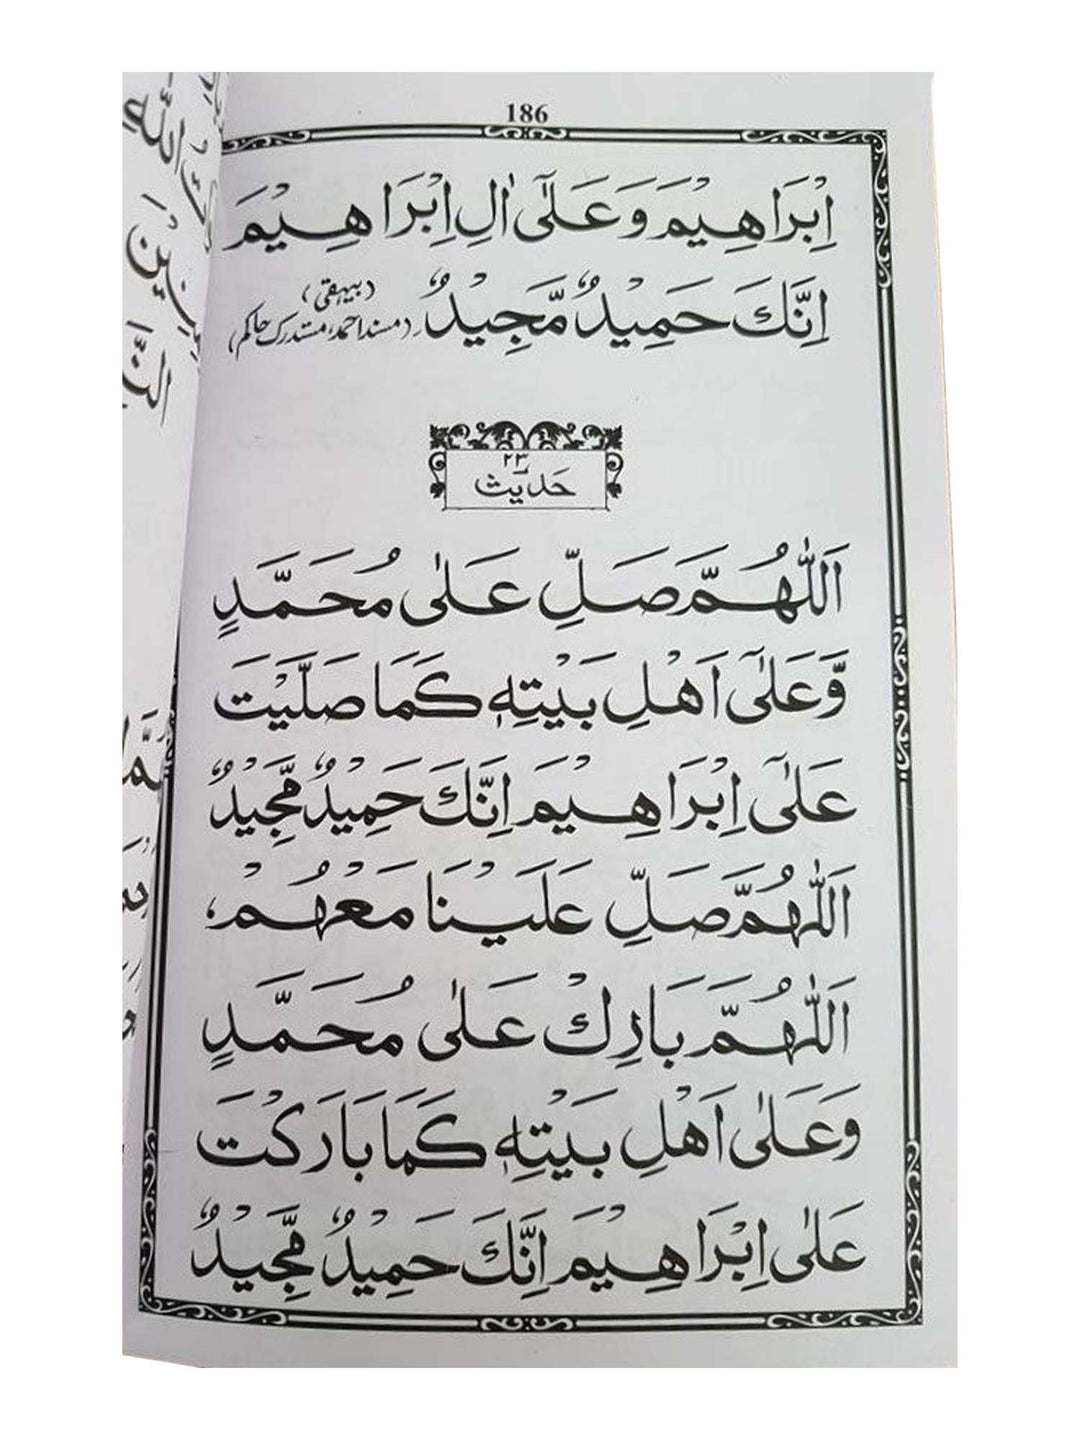 186
اِبْرَاهِيْمَ وَعَلٰٓى اٰلِ اِبْرَاهِيْمَ
اِنَّكَ حَمِيْدٌ مَّجِيْدٌ۔ (بیہقی)
(مسند احمد، مستدرک حاکم)
حدیث ۲۳
اَللّٰهُمَّ صَلِّ عَلٰى مُحَمَّدٍ
وَّعَلٰٓى اَهْلِ بَيْتِهٖ كَمَا صَلَّيْتَ
عَلٰٓى اِبْرَاهِيْمَ اِنَّكَ حَمِيْدٌ مَّجِيْدٌ
اَللّٰهُمَّ صَلِّ عَلَيْنَا مَعَهُمْ،
اَللّٰهُمَّ بَارِكْ عَلٰى مُحَمَّدٍ
وَعَلٰى اَهْلِ بَيْتِهٖ كَمَا بَارَكْتَ
عَلٰى اِبْرَاهِيْمَ اِنَّكَ حَمِيْدٌ مَّجِيْدٌ